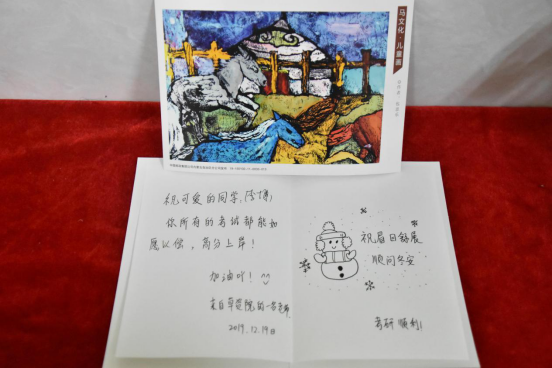 马文化·儿童画
祝可爱的同学,
你所有的考试都能如
愿以偿,高分上岸!
加油吖!
来自草莓院的一名老师
2019.12.19日
祝眉目舒展
顺问冬安
考研顺利!